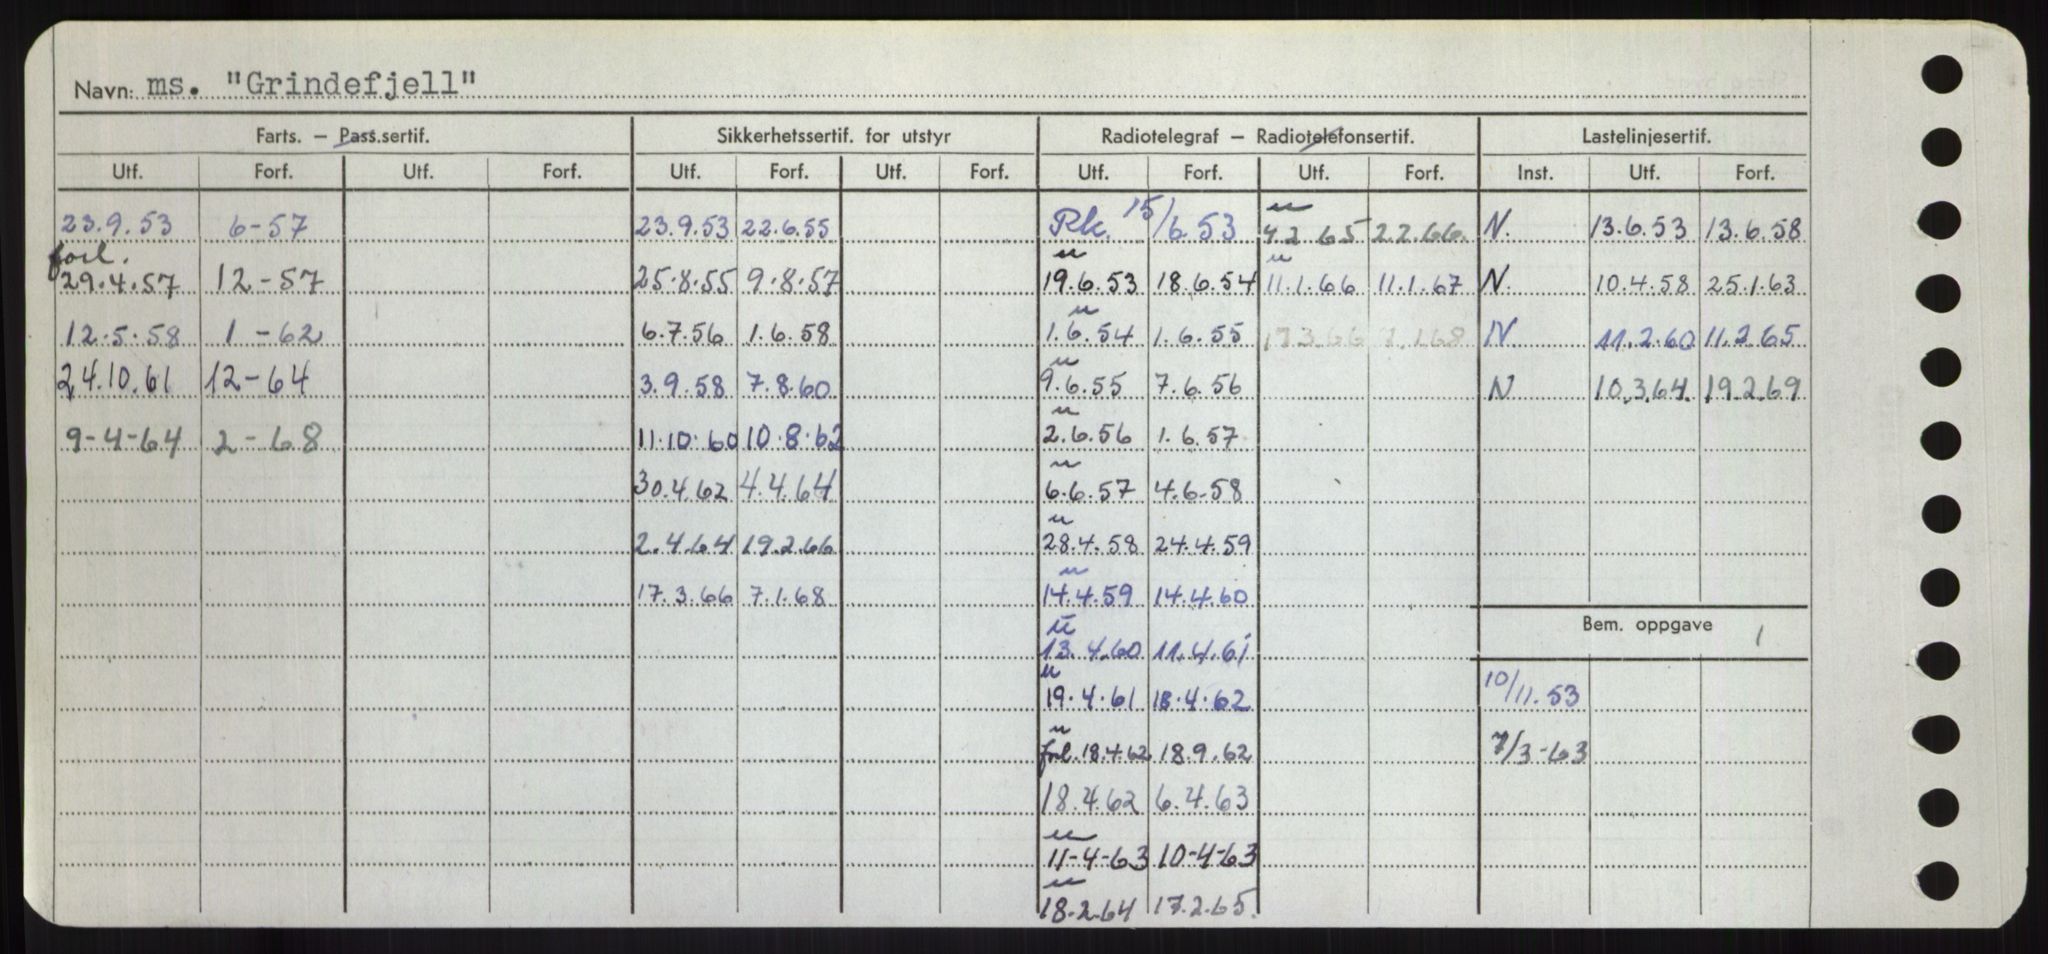 Navn: ms. "Grindefjell"
Farts. – Pass.sertif. Sikkerhetssertif. for utstyr Radiotelegraf – Radiotelefonsertif. Lastelinjesertif.
Utf. Forf. Utf. Forf. Utf. Forf. Utf. Forf. Utf. Forf. Utf. Forf. Inst. Utf. Forf.
23.9.53 6-57 23.9.53 22.6.55 Rk. 15/6.53 u 4.2 65 2.2.66. N. 13.6.53 13.6.58
forl. 29.4.57 12-57 25.8.55 9.8.57 u 19.6.53 18.6.54 u 11.1.66 11.1.67 N. 10.4.58 25.1.63
12.5.58 1-62 6.7.56 1.6.58 u 1.6.54 1.6.55 17.3.66 7.1.68 N. 11.2.60 11.2.65
24.10.61 12-64 3.9.58 7.8.60 u 9.6.55 7.6.56 N 10.3.64. 19.2.69
9-4-64 2-68 11.10.60 10.8.62 u 2.6.56 1.6.57
30.4.62 4.4.64 u 6.6.57 4.6.58
2.4.64 19.2.66 u 28.4.58 24.4.59
17.3.66 7.1.68 u 14.4.59 14.4.60
Bem. oppgave 1
u 13.4.60 11.4.61
u 19.4.61 18.4.62 10/11.53
u forl. 18.4.62 18.9.62 7/3-63
18.4.62 6.4.63
u 11-4-63 10-4-63
u 18.2.64 17.2.65.